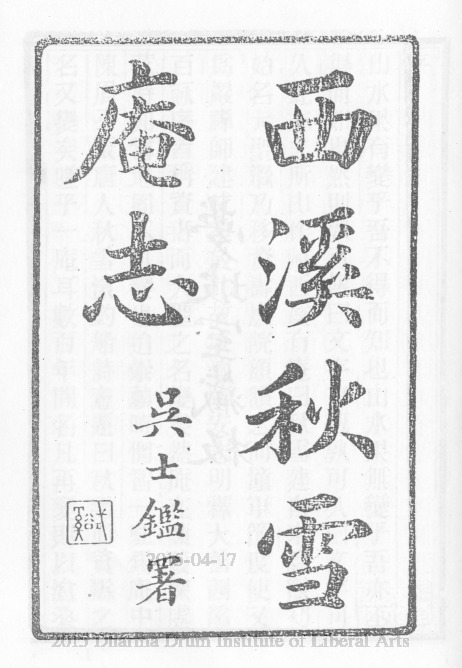 西溪秋雪
庵志
吳士鑑署
2015-04-17
2015 Dharma Drum Institute of Liberal Arts